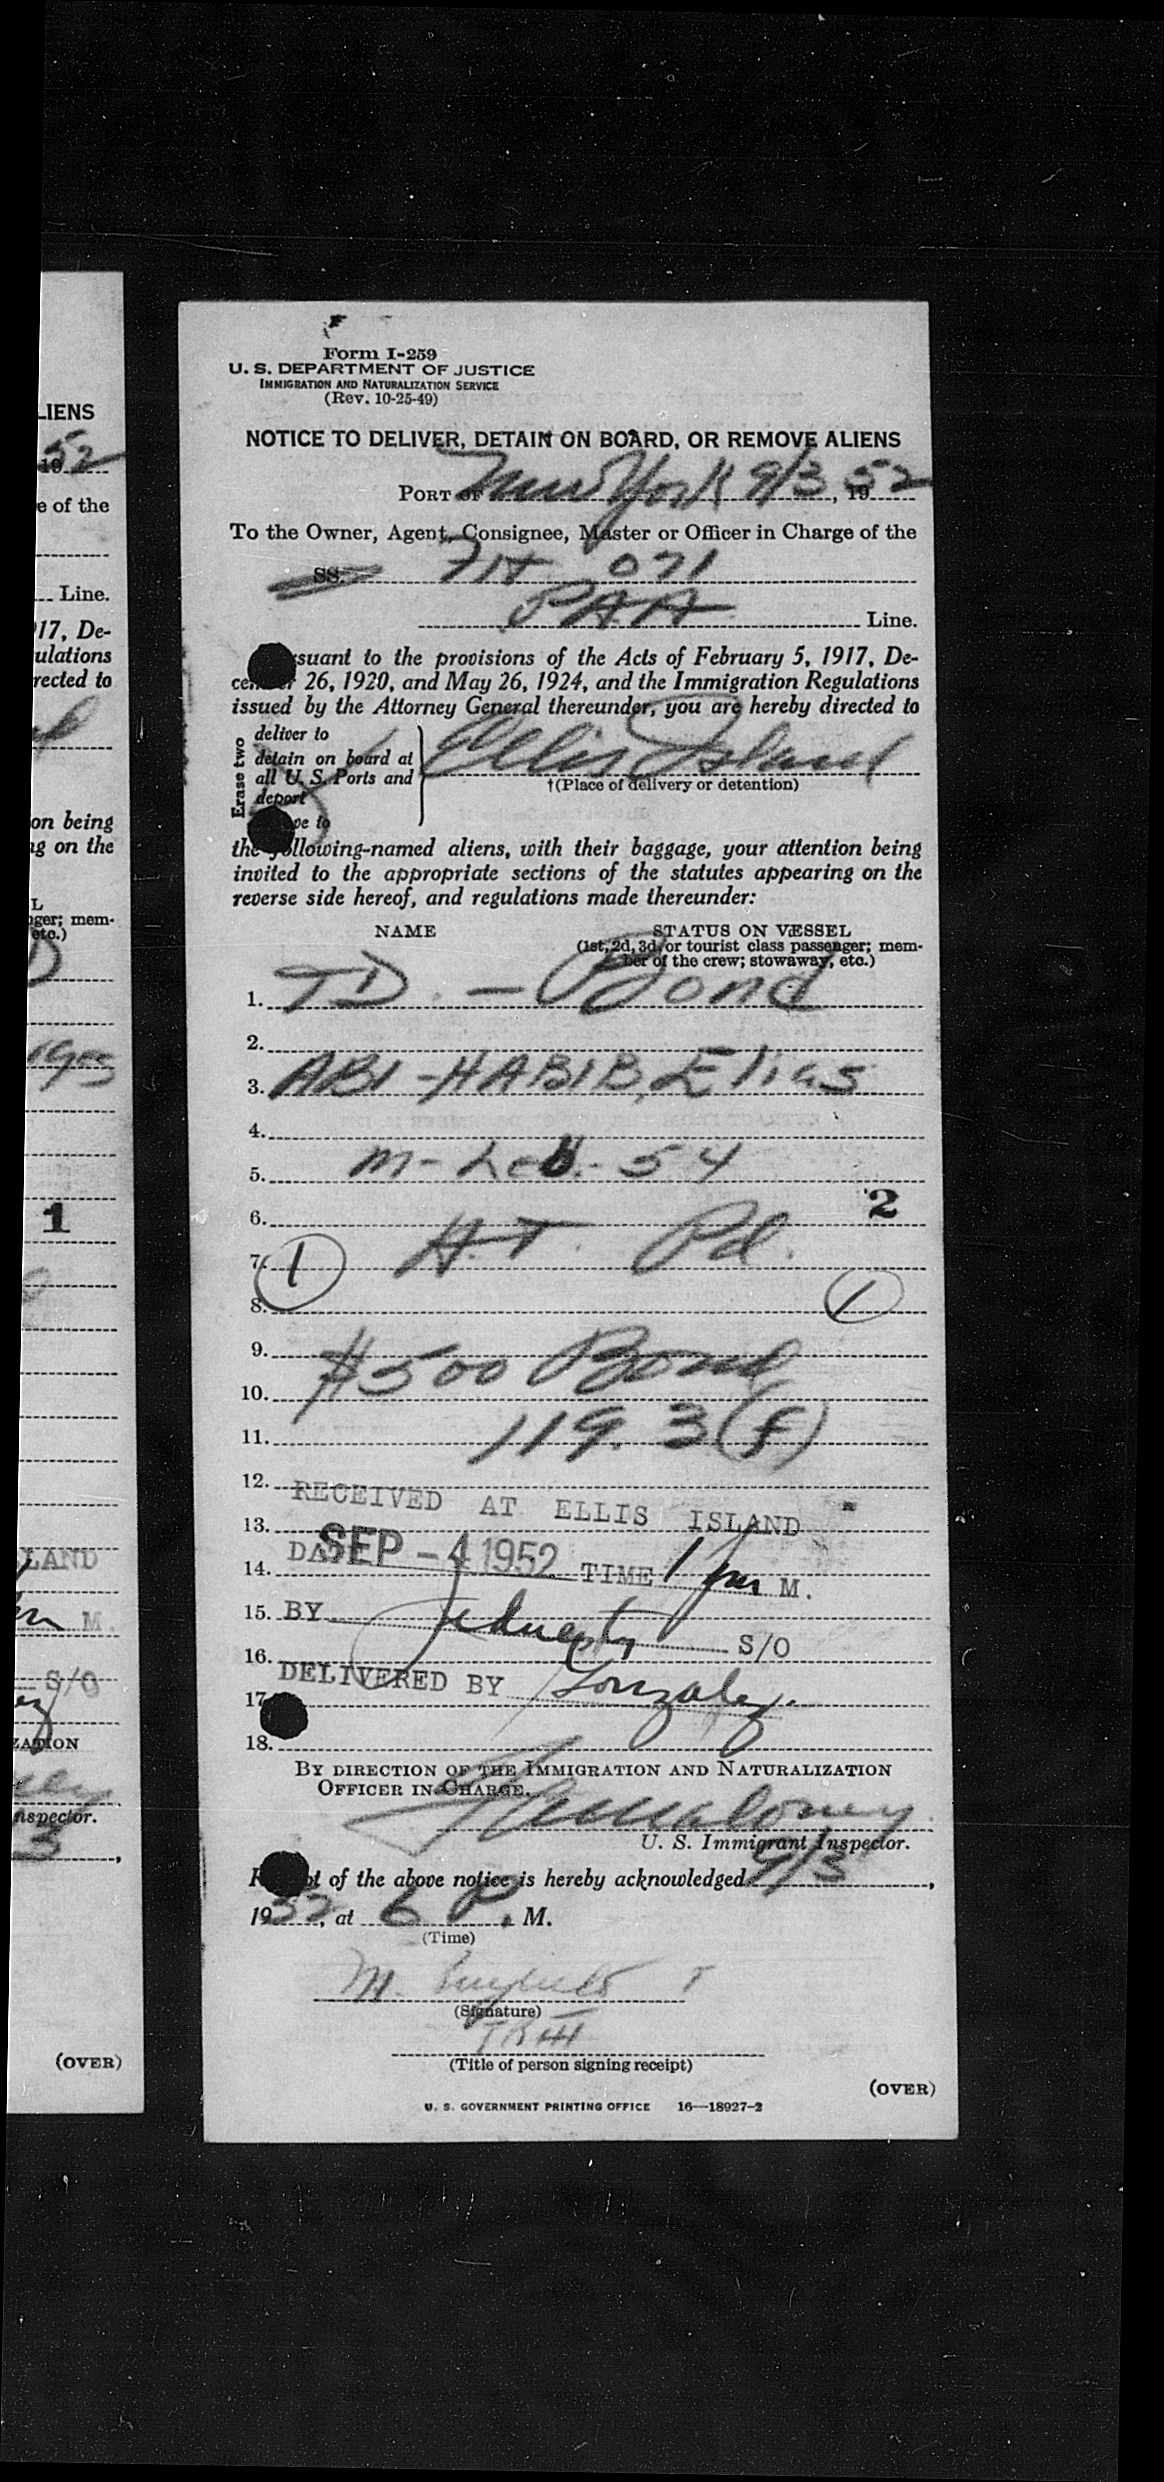 LIENS
1952
e of the
Line.
17, De-
ulations
rected to
on being
ng on the
L
nger; mem-
etc.)
D
1
LAND
M.
S/O
ZATION
nspector.
3,
(OVER)
Form I-259
U. S. DEPARTMENT OF JUSTICE
IMMIGRATION AND NATURALIZATION SERVICE
(Rev. 10-25-49)
NOTICE TO DELIVER, DETAIN ON BOARD, OR REMOVE ALIENS
PORT OF New York 9/3, 1952
To the Owner, Agent, Consignee, Master or Officer in Charge of the
SS. Flt 071
PAA Line.
rsuant to the provisions of the Acts of February 5, 1917, De-
cember 26, 1920, and May 26, 1924, and the Immigration Regulations
issued by the Attorney General thereunder, you are hereby directed to
Erase two
deliver to
detain on board at
all U. S. Ports and
deport
ve to
Ellis Island
†(Place of delivery or detention)
the following-named aliens, with their baggage, your attention being
invited to the appropriate sections of the statutes appearing on the
reverse side hereof, and regulations made thereunder:
NAME STATUS ON VESSEL
(1st, 2d, 3d, or tourist class passenger; mem-
ber of the crew; stowaway, etc.)
1. TD. - Bond
2.
3. ABI-HABIB, Elias
4.
5. M- Leb.- 54
6. 2
7. (1) H.T. Pd.
8. (1)
9.
10. $500 Bond
11. 119. 3(f)
12. RECEIVED AT ELLIS ISLAND
13.
14. DATE SEP -4 1952 TIME 1 pm M.
15. BY S/O
16.
17. DELIVERED BY Gonzalez.
18.
BY DIRECTION OF THE IMMIGRATION AND NATURALIZATION
OFFICER IN CHARGE.
Maloney
U. S. Immigrant Inspector.
R t of the above notice is hereby acknowledged 9/3,
1952, at 6 P. M.
(Time)
M.
(Signature)
(Title of person signing receipt)
(OVER)
U. S. GOVERNMENT PRINTING OFFICE 16—18927-2